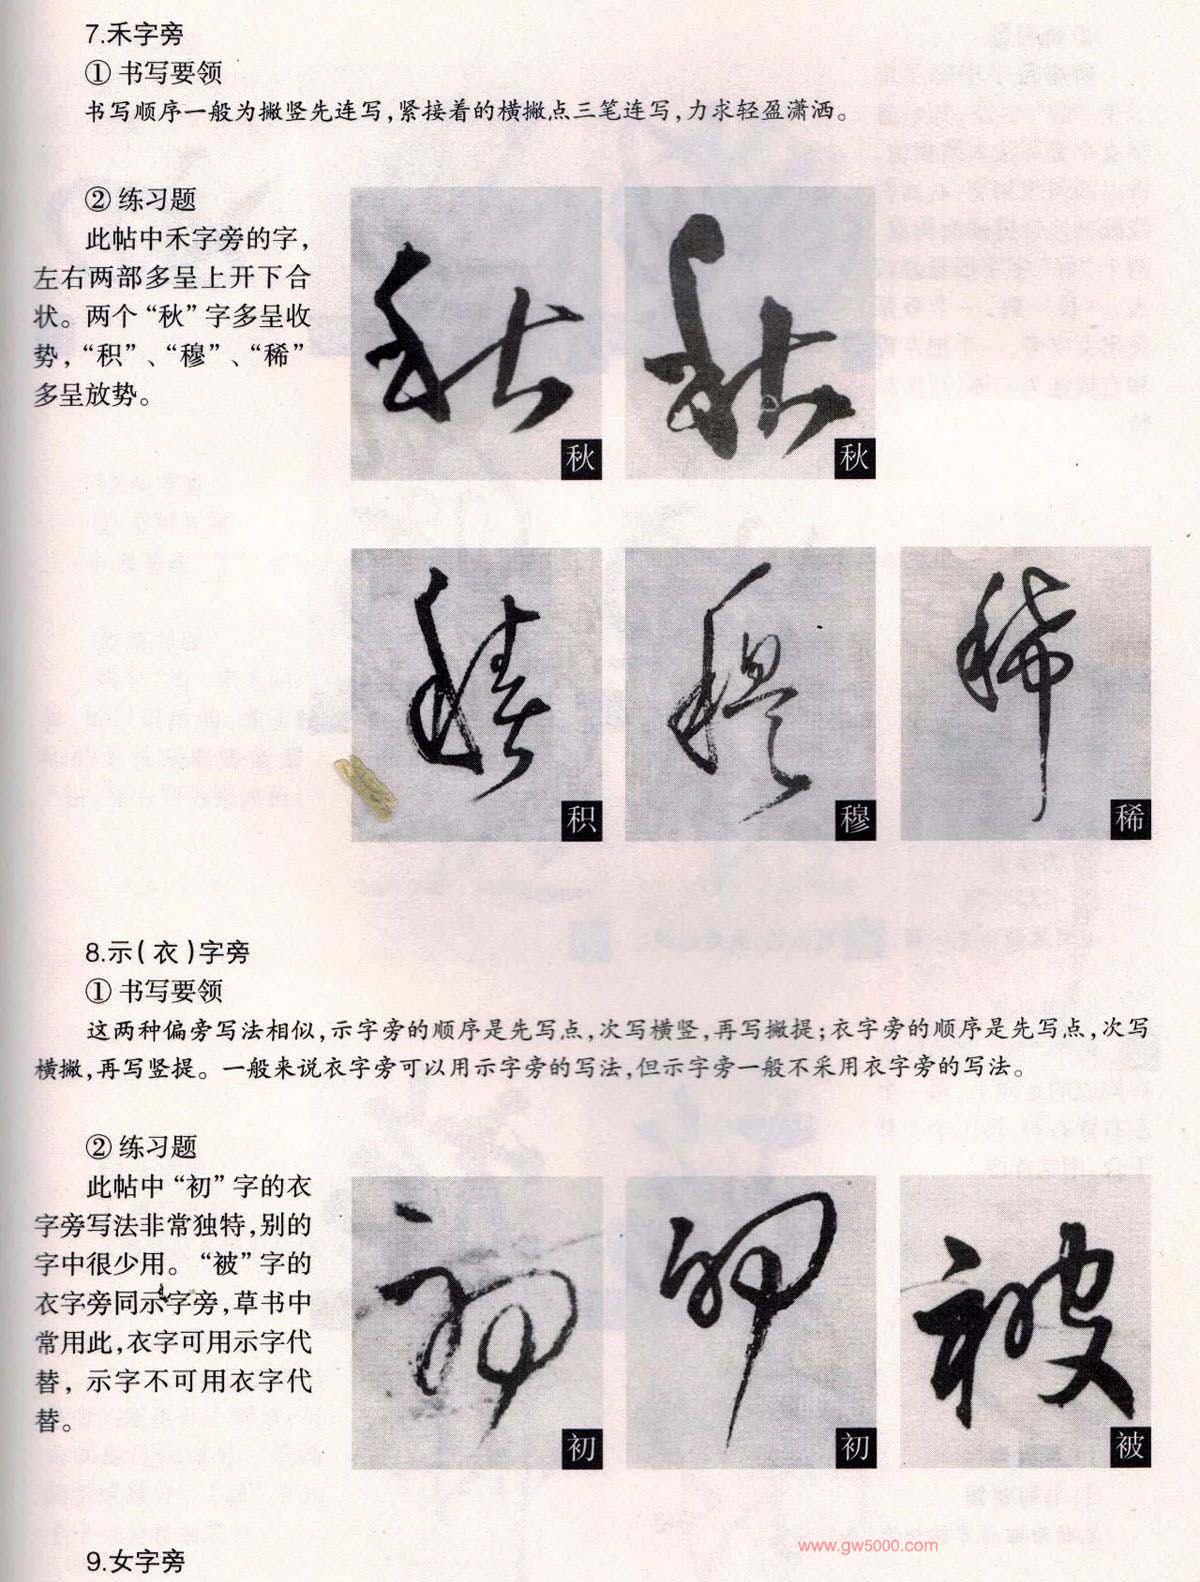 7.禾字旁
① 书写要领
书写顺序一般为撇竖先连写,紧接着的横撇点三笔连写,力求轻盈潇洒。
② 练习题
此帖中禾字旁的字,
左右两部多呈上开下合
状。两个“秋”字多呈收
势,“积”、“穆”、“稀”
多呈放势。
秋
秋
积
穆
稀
8.示(衣)字旁
① 书写要领
这两种偏旁写法相似,示字旁的顺序是先写点,次写横竖,再写撇提;衣字旁的顺序是先写点,次写
横撇,再写竖提。一般来说衣字旁可以用示字旁的写法,但示字旁一般不采用衣字旁的写法。
② 练习题
此帖中“初”字的衣
字旁写法非常独特,别的
字中很少用。“被”字的
衣字旁同示字旁,草书中
常用此,衣字可用示字代
替,示字不可用衣字代
替。
初
初
被
9.女字旁
www.gw5000.com